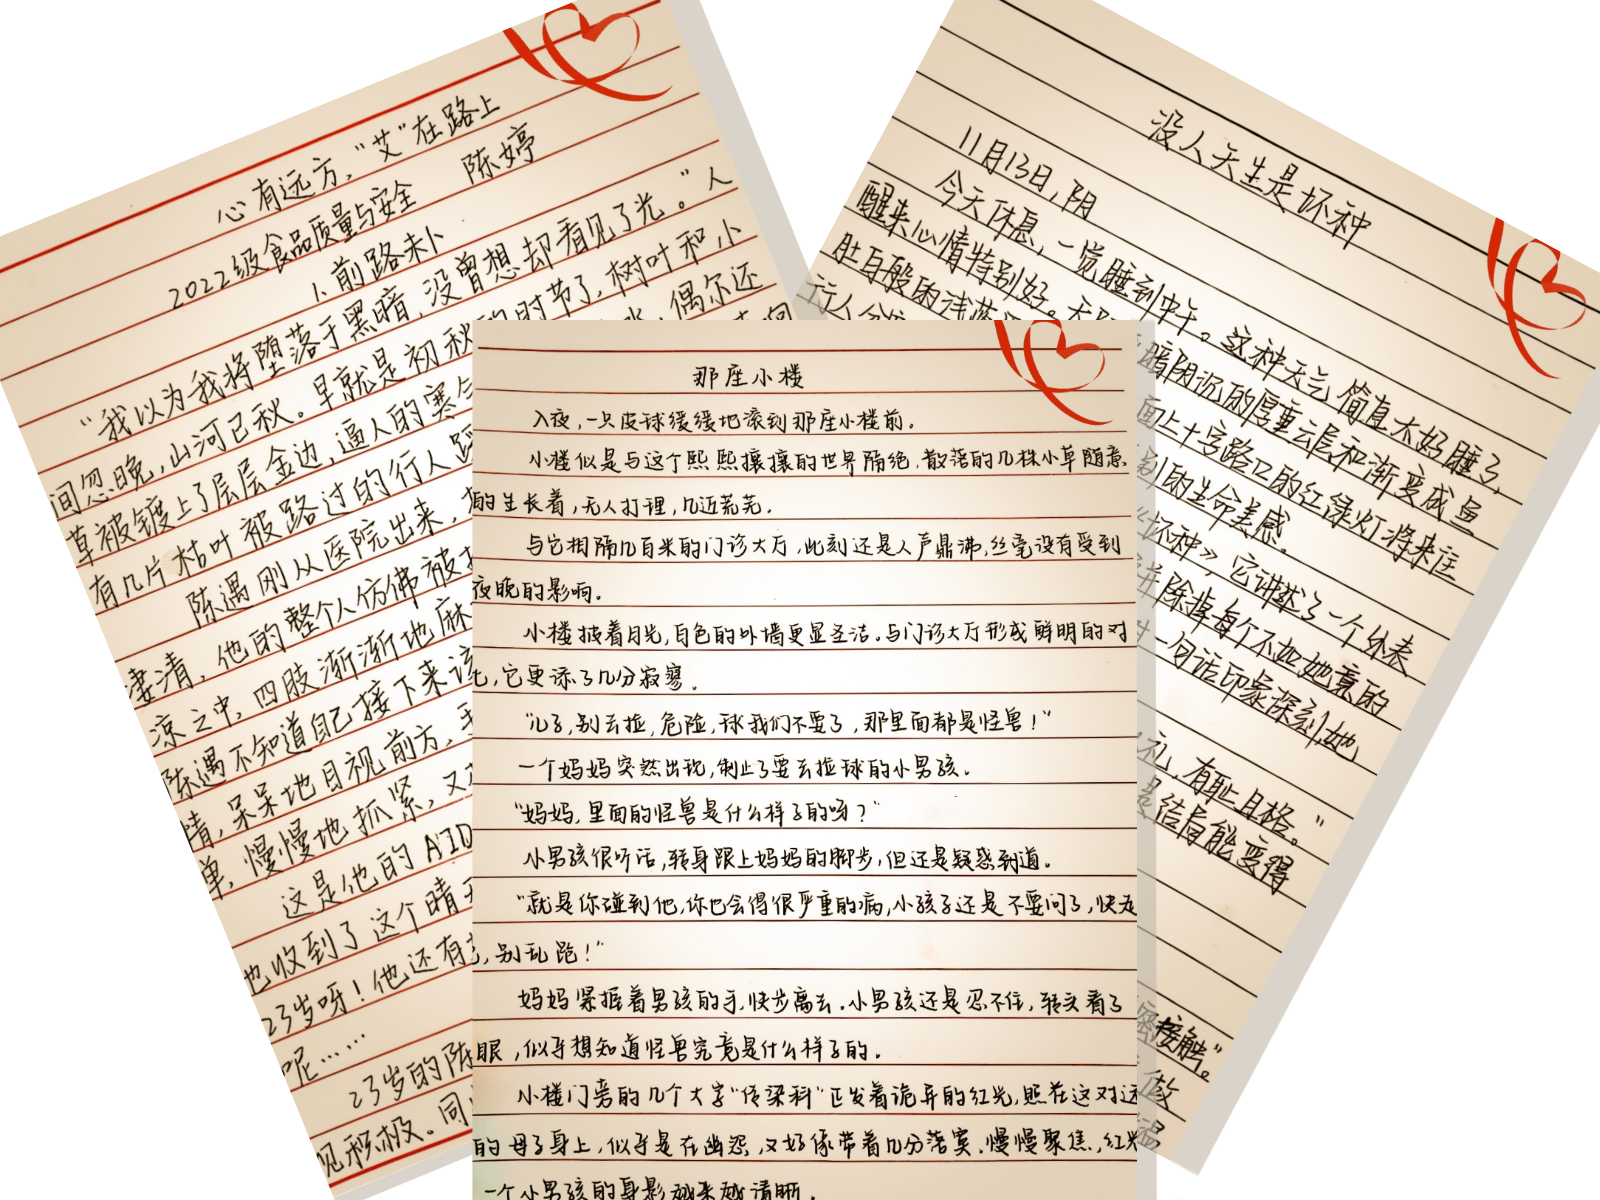 心有远方，“艾”在路上
2022级食品质量与安全 陈婷
1、前路未卜
“我以为我将堕落于黑暗，没曾想却看见了光。”人
间忽晚，山河已秋。早就是初秋的时节了，树叶和小
草被镀上了层层金边，逼人的寒气 偶尔还
有几片枯叶被路过的行人
陈遇刚从医院出来，
凄清，他的整个人仿佛被
凉之中，四肢渐渐地麻
陈遇不知道自己接下来该
情，呆呆地目视前方，
单，慢慢地抓紧，又
这是他的AID
也收到了这个晴天
23岁呀！他还有
呢……
23岁的陈
见积极。同
那座小楼
入夜，一只皮球缓缓地滚到那座小楼前。
小楼似是与这个熙熙攘攘的世界隔绝，散落的几株小草随意
的生长着，无人打理，几近荒芜。
与它相隔几百米的门诊大厅，此刻还是人声鼎沸，丝毫没有受到
夜晚的影响。
小楼披着月光，白色的外墙更显圣洁。与门诊大厅形成鲜明的对
比，它更添了几分寂寥。
“儿子，别去捡，危险，球我们不要了，那里面都是怪兽！”
一个妈妈突然出现，制止了要去捡球的小男孩。
“妈妈，里面的怪兽是什么样子的呀？”
小男孩很听话，转身跟上妈妈的脚步，但还是疑惑到道。
“就是你碰到他，你也会得很严重的病，小孩子还是不要问了，快走
，别乱跑！”
妈妈紧握着男孩的手，快步离去。小男孩还是忍不住，转头看了
眼，似乎想知道怪兽究竟是什么样子的。
小楼门旁的几个大字“传染科”正发着诡异的红光，照在这对远
的母子身上，似乎是在幽怨，又好像带着几分落寞。慢慢聚焦，红光
一个小男孩的身影越来越清晰。
没人天生是坏种
11月13日，阴
今天休息，一觉睡到中午。这种天气简直太好睡了，
醒来心情特别好。天 暗阴沉的厚重云层和渐变成鱼
肚白般的浅蓝 面上十字路口的红绿灯将来往
行人分 别的生命美感。
《坏种》，它讲述了一个外表
并除掉每个不如她意的
一句话印象深刻，她
礼，有耻且格。”
是结局能变得
密接触”
做